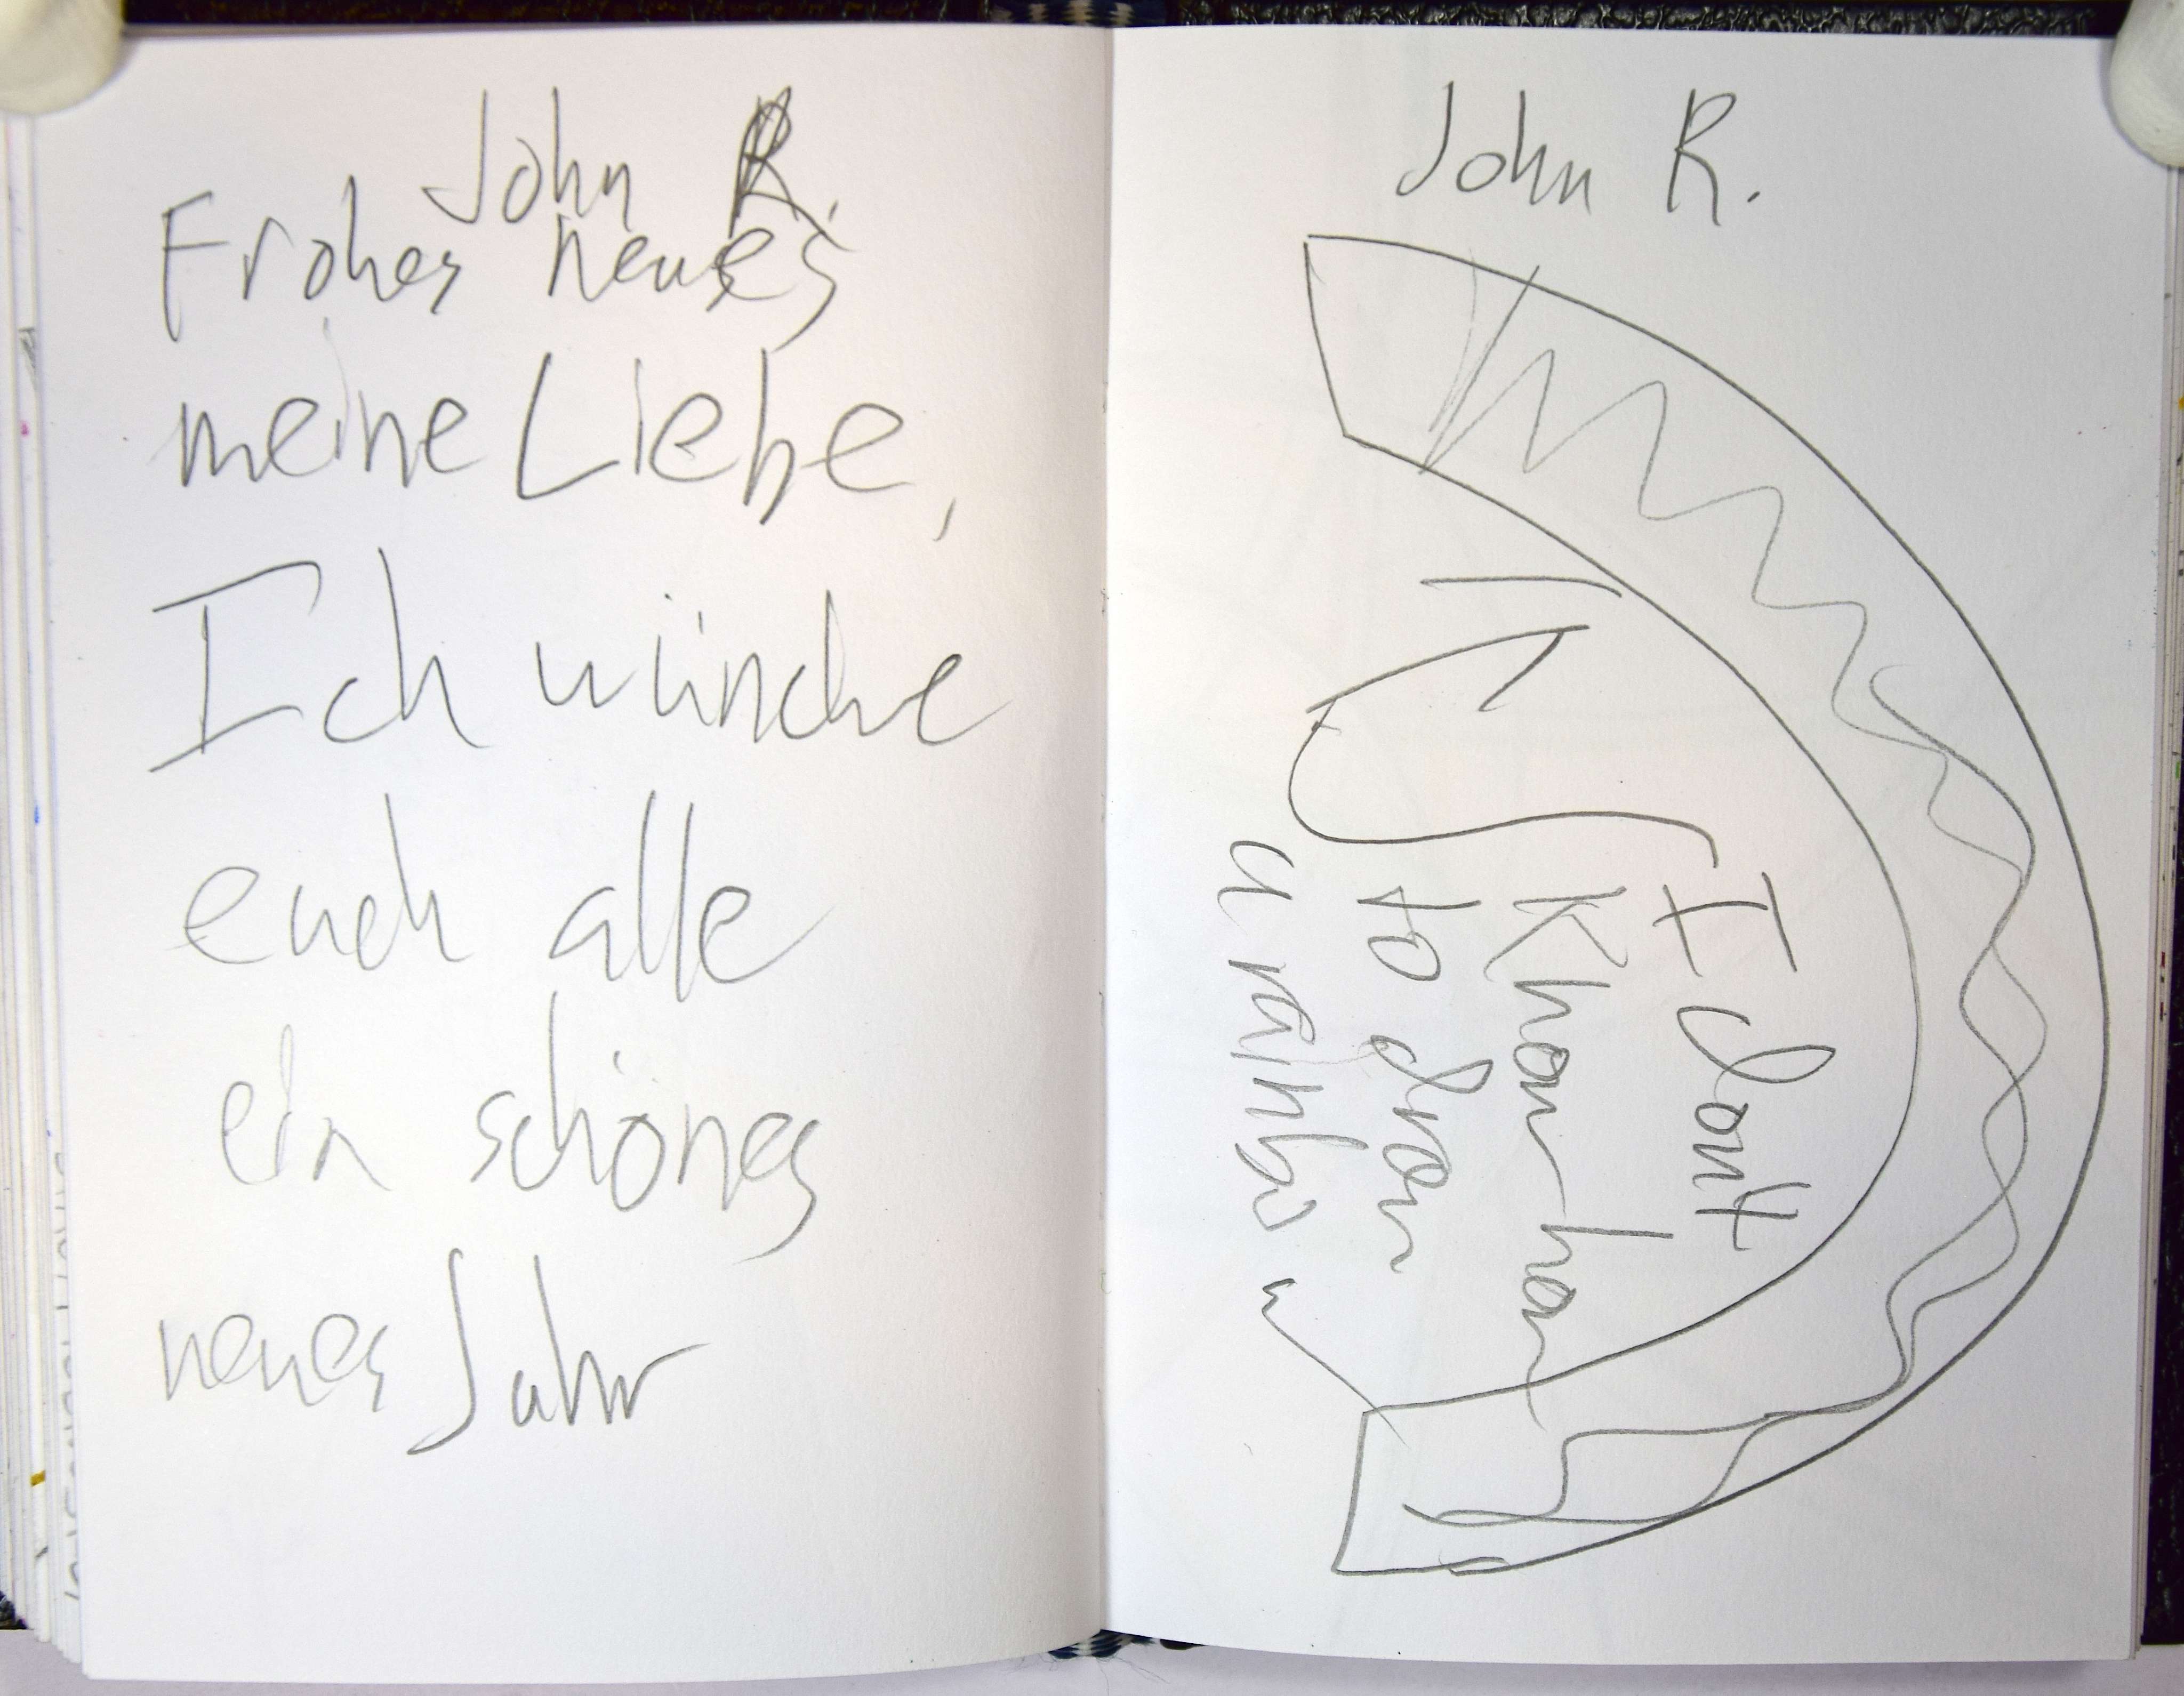 John R.
Frohes neues
meine Liebe,
Ich wünche
euch alle
ein schönes
neues Jahr
John R.
I don't
know how
to draw
a rainbow